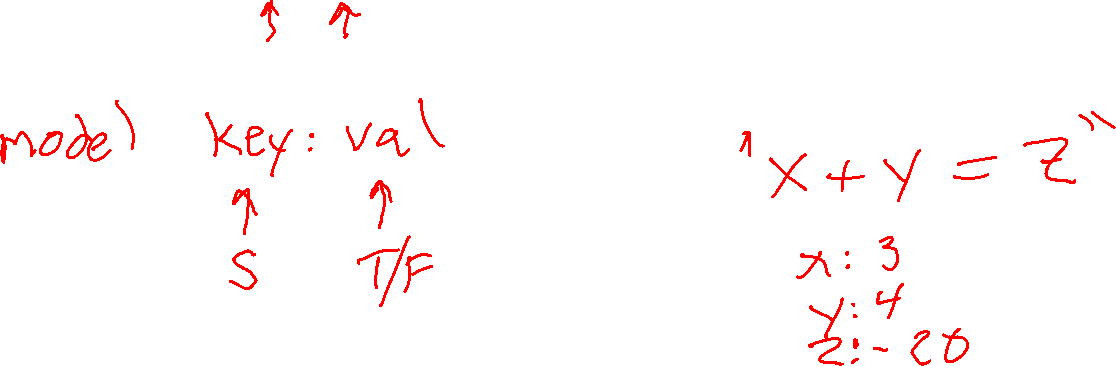 model key: val
S T/F
"x + y = z"
x: 3
y: 4
z: -20